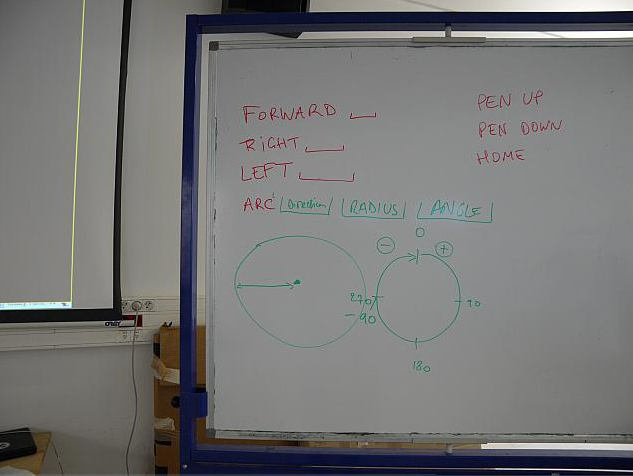 FORWARD
RIGHT
LEFT
ARC Direction RADIUS ANGLE
PEN UP
PEN DOWN
HOME
0
− +
270
−90
90
180